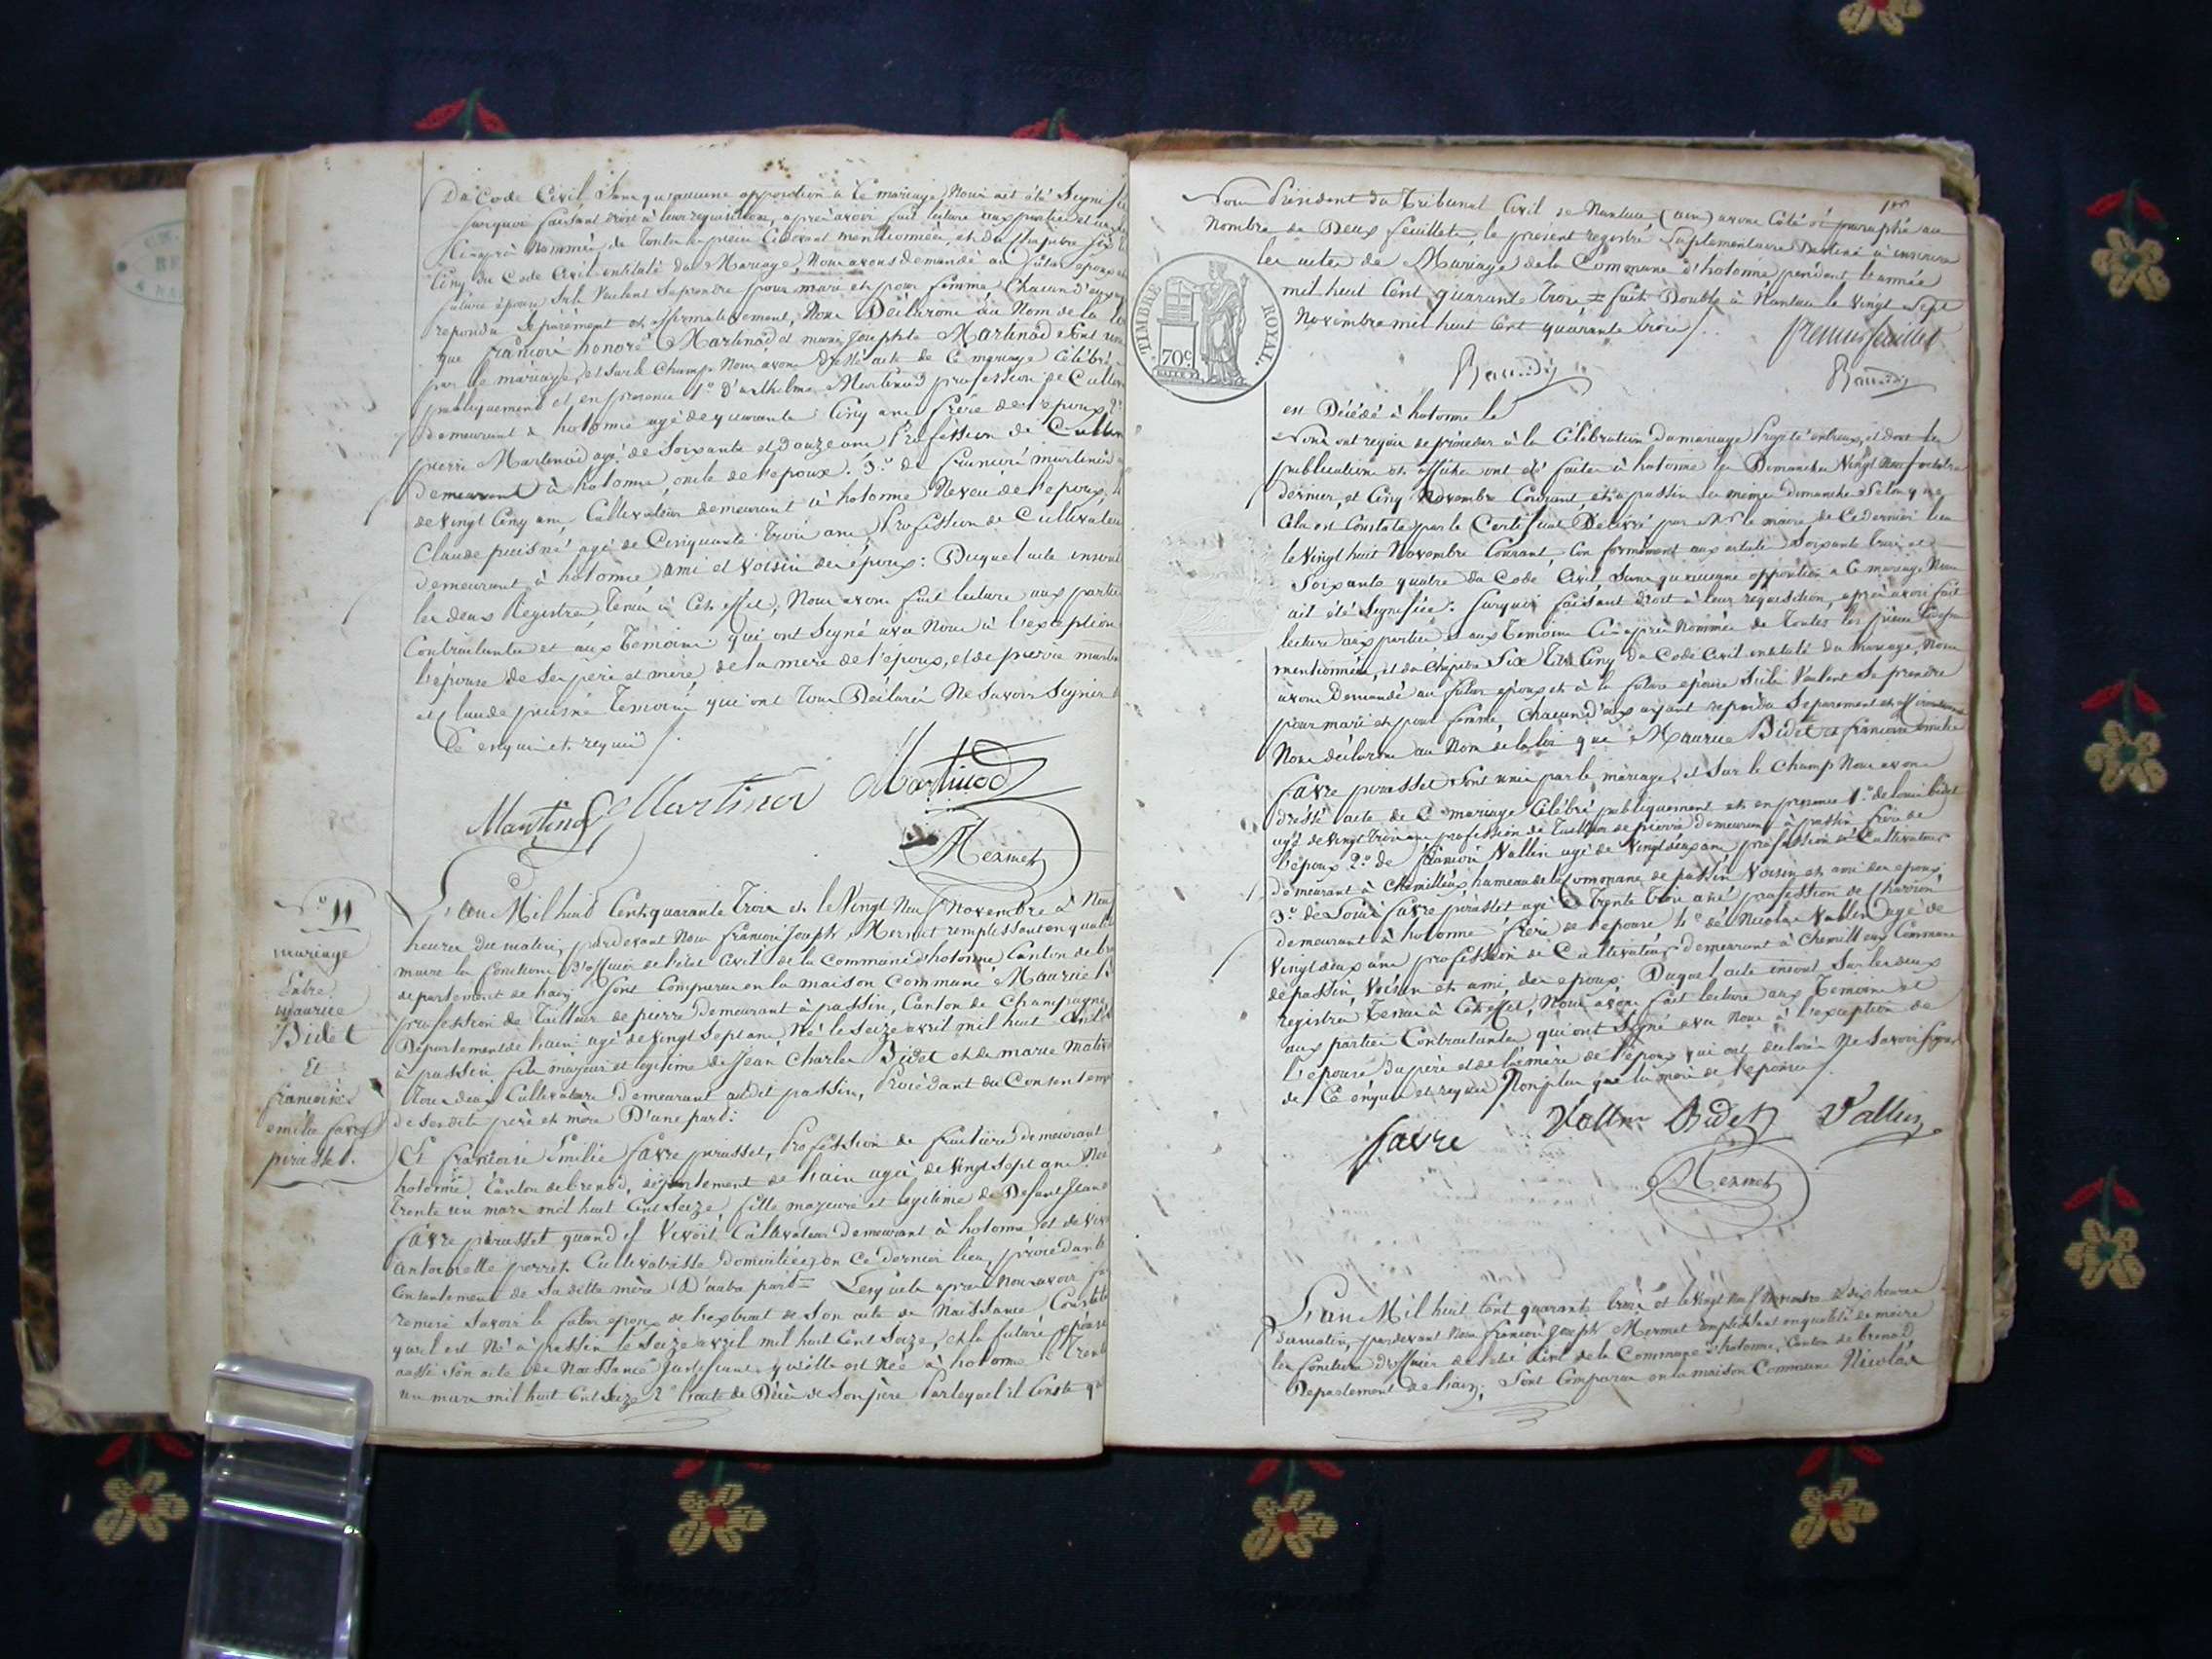 Du Code Civil, Sans qu'aucune opposition à Ce mariage, Nous ait été Signifiée
surquoi faisant droit à leur requisition, après avoir fait lecture aux parties et
Ciaprès Nommés, de Toutes les pieces Cidevant mentionnées, et du Chapitre Six
Cinq du Code Civil intitulé du Mariage, Nous avons demandé au futur epoux
future épouse S'ils Veulent Se prendre pour mari et pour femme, Chacun d'eux
repondu Séparément et affirmativement, Nous Déclarons au Nom de la Loi
que françois honoré Martinod et marie Josephte Martinod Sont unis
par le mariage, et Sur le Champ Nous avons Dressé acte de Ce mariage Célébré
publiquement et en presence 1.° D'anthelme Martinod profession de Cultiv
demeurant à hotonne agé de quarante Cinq ans frère de l'epoux 2.°
pierre Martinod agé de Soixante et douze ans Profession de Cultiv
demeurant à hotonne, oncle de l'epoux. 3.° de françois martinod
de Vingt Cinq ans, Cultivateur demeurant à hotonne Neveu de l'epoux,
Claude puisné agé de Cinquante Trois ans, Profession de Cultivateur
demeurant à hotonne, ami et Voisin des époux: Duquel acte inscrit
les deux Registres, Tenus à Cet effet, Nous avons fait lecture aux parties
Contractantes et aux Temoins qui ont Signé avec Nous à l'exception
l'epouse de Ses père et mère, de la mère de l'époux, et de pierre martin
et Claude puisné Temoins qui ont Tous Déclarés Ne Savoir Signer
De enquis et requis /.
Martinod Martinod Martinod
Mermet
N.° 11
mariage
Entre
Maurice
Bidet
Et
françoise
emilie favre
pirasset.
L'an Mil huit Cent quarante Trois et le Vingt Neuf Novembre à Neuf
heures du matin, pardevant Nous francois Joseph Mermet remplissant en qualité
maire les fonctions d'officier de l'état Civil de la Commune d'hotonne Canton de br
departement de l'ain, Sont Comparus en la maison Commune Maurice B
profession de Tailleur de pierre Demeurant à passin, Canton de Champagne,
Departement de l'ain: agé de Vingt Sept ans, Né le Seize avril mil huit Cent
à passin fils majeur et legitime de Jean Charles Bidet et de marie
Tous deux Cultivateurs Demeurant audit passin, Procédant du Consentem
de Sesdits père et mère D'une part:
Et françoise Emilie favre pirasset, Profession de fruitière demeurant
hotonne Canton de brenod, département de l'ain agée de Vingt Sept ans Née
Trente un mars mil huit Cent Seize, fille majeure et legitime de Defunt Jean
favre pirasset quand il Vivoit Cultivateur demeurant à hotonne et de Viv
antoinette perret Cultivatrisse Domiciliée en Ce dernier lieu, procedant
Consentement de Sa ditte mère D'autre part = Lesquels après Nous avoir
remis Savoir le futur epoux de l'extrait de Son acte de Naissance Constate
qu'il est Né à passin le Seize avril mil huit Cent Seize, et la future epouse
aussi Son acte de Naissance Justifiant qu'elle est Née à hotonne le Trente
un mars mil huit Cent Seize 2.° l'acte de Décès de Son père Par lequel il Conste que
1er
Nous President du Tribunal Civil de Nantua (ain) avons Coté et paraphé au
Nombre de Deux feuillets, le present registre Suplementaire Destiné à inscrire
les actes de Mariage de la Commune d'hotonne pendant l'année
mil huit Cent quarante Trois = fait Double à Nantua le Vingt Sept
Novembre mil huit Cent quarante trois /.
premier feuillet
TIMBRE ROYAL.
70c
est Décédé à hotonne le
Nous ont requis de procéder à la Célébration du mariage Projeté entreux, et dont les
publications et affiches ont été faites à hotonne les Dimanches Vingt Neuf octobre
dernier, et Cinq Novembre Courant, et à passin les mêmes Dimanches Selon que
Cela est Constaté par le Certificat Délivré par Mr le maire de Ce dernier lieu
le Vingt huit Novembre Courant, Conformément aux articles Soixante trois et
Soixante quatre du Code Civil, Sans qu'aucune opposition à Ce mariage Nous
ait été Signifiée: Surquoi faisant droit à leur requisition, après avoir fait
lecture aux parties, et aux Temoins Ciaprès Nommés de Toutes les pièces
mentionnées, et du Chapitre Six Titre Cinq du Code Civil intitulé du mariage, Nous
avons Demandé au futur epoux et à la future épouse S'ils Veulent Se prendre
pour mari et pour femme, Chacun d'eux ayant repondu Separement et affirmativement
Nous declarons au Nom de la loi que Maurice Bidet et françoise emilie
favre pirasset Sont unis par le mariage, et Sur le Champ Nous avons
dressé acte de Ce mariage Célébré publiquement et en presence 1.° de louis bidet
agé de Vingt Trois ans profession de Tailleur de pierre demeurant à passin frère de
l'époux 2.° de françois Vallin agé de Vingt deux ans profession de Cultivateur
demeurant à Chemillieux hameau de la Commune de passin Voisin et ami des epoux
3.° de Louis favre pirasset agé de Trente Trois ans profession de Charron
demeurant à hotonne frère de l'epouse 4.° de Nicolas Vallin agé de
Vingt deux ans profession de Cultivateur demeurant à Chemillieux Commune
de passin, Voisin et ami des epoux: Duquel acte inscrit Sur les deux
registres Tenus à Cet effet, Nous avons fait lecture aux Temoins et
aux parties Contractantes qui ont Signé avec Nous à l'exception de
l'epouse du père et de la mère de l'époux qui ont declarés Ne Savoir Signer
de Ce enquis et requis Non plus que la mère de l'epouse /.
favre Vallin Bidet Vallin
Mermet
L'an Mil huit Cent quarante trois et le Vingt Neuf Novembre à dix heures
du matin, pardevant Nous françois Joseph Mermet remplissant en qualité de maire
les fonctions d'officier de l'état Civil de la Commune d'hotonne, Canton de brenod
Departement de l'ain; Sont Comparus en la maison Commune Nicolas